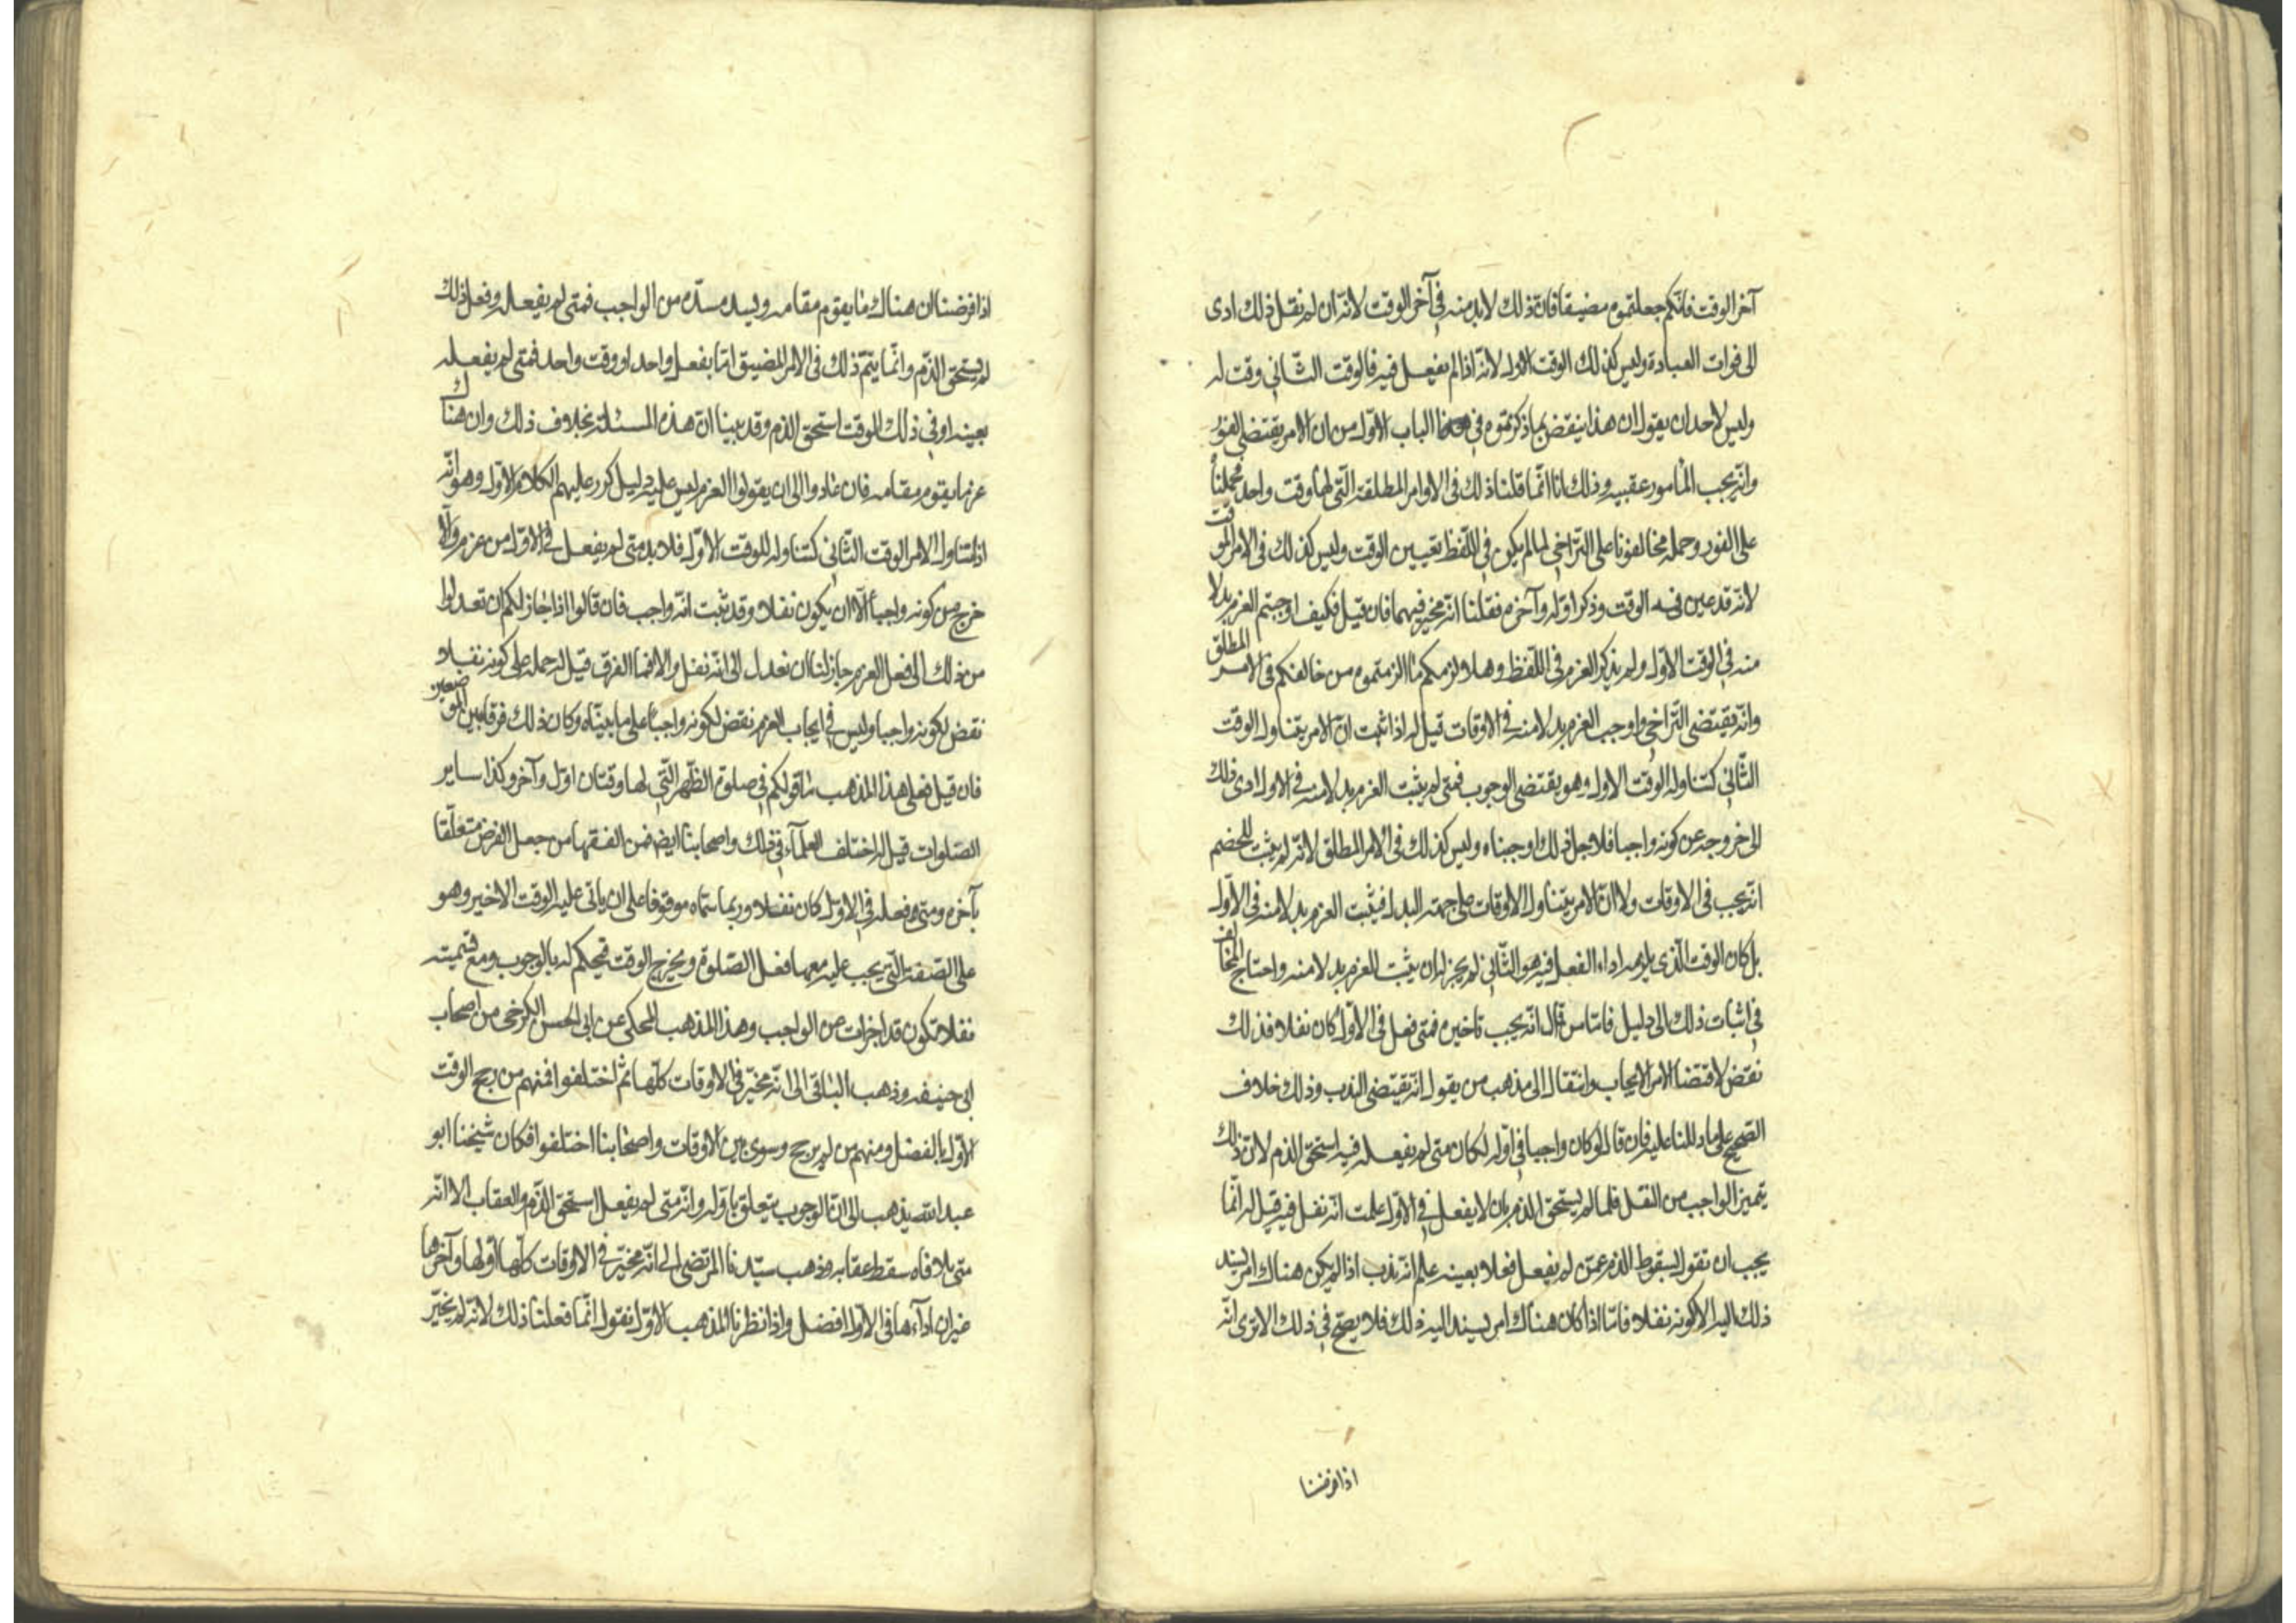 آخر الوقت فانّكم جعلتموه مضيقا فانّ ذلك لابد منه في آخر الوقت لانّه ان لم نقل ذلك ادى
الى فوات العبادة وليس كذلك الوقت الاول لانّه اذا لم يفعل فيه فالوقت الثّاني وقت له
وليس لاحد ان يقول ان هذا ينقض بما ذكرتموه في هذا الباب الاوّل من ان الامر يقتضى الفور
وانّه يجب المأمور عقيبه وذلك انا انّما قلنا ذلك في الاوامر المطلقة الّتي لها وقت واحد فحملناه
على الفور وحمله مخالفونا على التراخي لما لم يكن في اللّفظ تعيين الوقت وليس كذلك في الامر الموقت
لانّه قد عين فيه الوقت وذكر اوّله وآخره فقلنا انّه مخير فيهما فان قيل فكيف اوجبتم العزم بدلا
منه في الوقت الاوّل ولم يذكر العزم في اللّفظ وهلا لزمكم ما الزمتموه من خالفكم في الامر المطلق
وانّه يقتضى التّراخي واوجب العزم بدلا منه في الاوقات قيل له اذا ثبت انّ الامر يتناول الوقت
الثّاني كتناوله الوقت الاول وهو يقتضى الوجوب فمتى لم يثبت العزم بدلا منه في الاول ادى ذلك
الى خروجه عن كونه واجبا فلاجل ذلك اوجبناه وليس كذلك في الامر المطلق لانّه لم يثبت للخصم
انّه يجب في الاوقات ولا انّ الامر يتناول الاوقات على جهة البدل فيثبت العزم بدلا منه في الاوّل
بل كان الوقت الّذي يلزمه اداء الفعل فيه هو الثّاني لم يجز له ان يثبت العزم بدلا منه واحتاج المخالف
في اثبات ذلك الى دليل فامّا من قال انّه يجب تاخيره فمتى فعل في الاوّل كان نفلا فذلك
نقض لاقتضا الامر الايجاب وانتقال الى مذهب من يقول انّه يقتضى الندب وذلك خلاف
الصّحيح على ما دللنا عليه فان قال لو كان واجبا في اوّله لكان متى لم يفعله فيه استحق الذم لانّ ذلك
يتميز الواجب من النفل فلما لم يستحق الذم بان لا يفعل في الاوّل علمت انّه نفل فيه قيل له انّما
يجب ان نقول بسقوط الذم عمّن لم يفعل فعلا بعينه علم انّه ندب اذا لم يكن هناك امر يسند
ذلك اليه الا كونه نفلا فامّا اذا كان هناك امر يسند اليه ذلك فلا يصحّ في ذلك الا ترى انّه
اذا فرضنا
اذا فرضنا ان هناك ما يقوم مقامه ويسد مسدّه من الواجب فمتى لم يفعله وفعل ذلك
لم يستحق الذّم وانّما يتمّ ذلك في الامر المضيق امّا بفعل واحد او وقت واحد فمتى لم يفعله
بعينه او في ذلك الوقت استحق الذم وقد بينا انّ هذه المسئلة بخلاف ذلك وان هناك
عزما يقوم مقامه فان عادوا الى ان يقولوا العزم ليس عليه دليل كرر عليهم الكلام الاوّل وهو انّه
اذا تناول الامر الوقت الثّاني كتناوله للوقت الاوّل فلا بد متى لم يفعل في الاوّل من عزم والّا
خرج من كونه واجباً الّا ان يكون نفلا وقد ثبت انّه واجب فان قالوا اذا جاز لكم ان تعدلوا
من ذلك الى فعل العزم جاز لنا ان نعدل الى انّه نفل والا فما الفرق قيل له حمله على كونه نفلا
نقض لكونه واجبا وليس في ايجاب العزم نقض لكونه واجباً على ما بينّاه وكان ذلك فرقا بين الموضعين
فان قيل فعلى هذا المذهب ما قولكم في صلوة الظّهر الّتي لها وقتان اوّل وآخر وكذا ساير
الصّلوات قيل له اختلف العلمآء في ذلك واصحابنا ايضا فمن الفقها من جعل الفرض متعلّقا
بآخره ومتى فعله في الاوّل كان نفلا وربما سمّاه موقوفا على ان ياتى عليه الوقت الاخير وهو
على الصّفة الّتي يجب عليه معها فعل الصّلوة ويخرج الوقت فيحكم له بالوجوب ومع تسميته
نفلا تكون قد اجزات عن الواجب وهذا المذهب المحكي عن ابي الحسن الكرخى من اصحاب
ابى حنيفه وذهب الباقي الى انّه مخيّر في الاوقات كلّها ثم اختلفوا فمنهم من رجح الوقت
الاوّل بالفضل ومنهم من لم يرجح وسوى بين الاوقات واصحابنا اختلفوا فكان شيخنا ابو
عبد الله يذهب الى انّ الوجوب يتعلق باوّله وانّه متى لم يفعل استحق الذّم والعقاب الا انّه
متى تلافاه سقط عقابه وذهب سيّدنا المرتضى الى انّه مخيّر في الاوقات كلّها اوّلها وآخرها
غير ان ادآءها في الاوّل افضل واذا نظرنا المذهب الاوّل نقول انّما فعلنا ذلك لانّه لم يخيّر